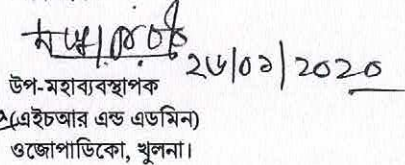 ২৬/০১/2020
উপ-মহাব্যবস্থাপক
(এইচআর এন্ড এডমিন)
ওজোপাডিকো, খুলনা।